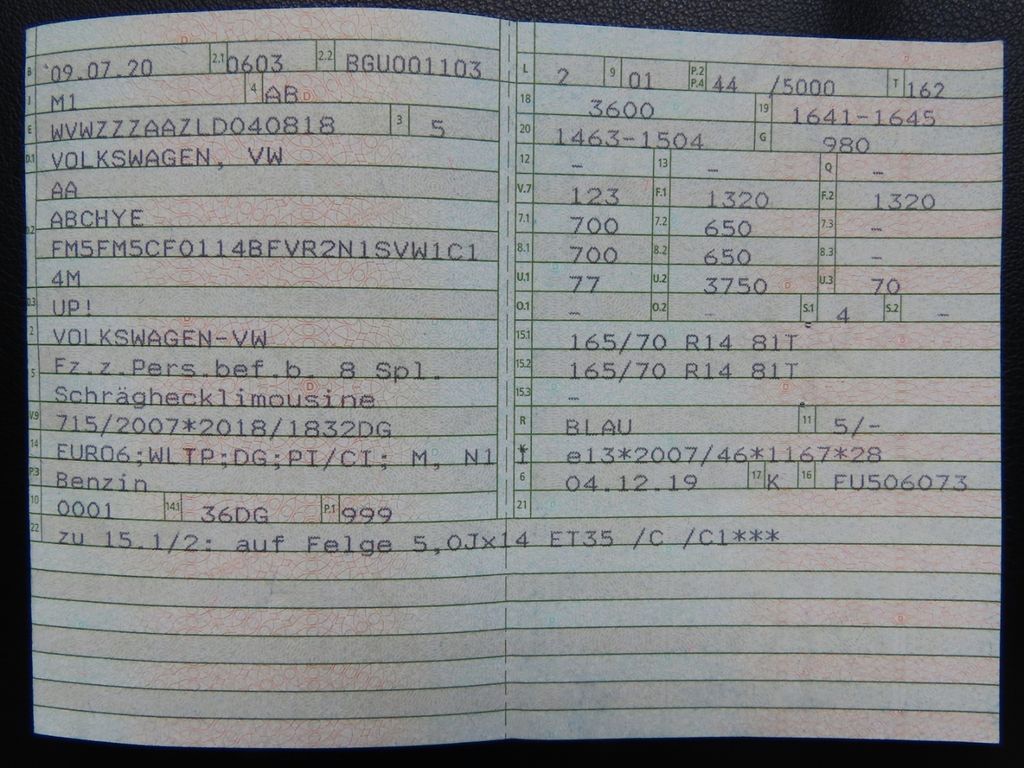 B 09.07.20 2.1 0603 2.2 BGU001103
J M1 4 AB
E WVWZZZAAZLD040818 3 5
D.1 VOLKSWAGEN, VW
AA
ABCHYE
D.2 FM5FM5CF0114BFVR2N1SVW1C1
4M
D.3 UP!
2 VOLKSWAGEN-VW
Fz.z.Pers.bef.b. 8 Spl.
5 Schräghecklimousine
V.9 715/2007*2018/1832DG
14 EURO6;WLTP;DG;PI/CI; M, N1 I
P.3 Benzin
10 0001 14.1 36DG P.1 999
22 zu 15.1/2: auf Felge 5,0Jx14 ET35 /C /C1***
L 2 9 01 P.2 P.4 44 /5000 T 162
18 3600 19 1641-1645
20 1463-1504 G 980
12 – 13 – Q –
V.7 123 F.1 1320 F.2 1320
7.1 700 7.2 650 7.3 –
8.1 700 8.2 650 8.3 –
U.1 77 U.2 3750 U.3 70
O.1 – O.2 – S.1 4 S.2 –
15.1 165/70 R14 81T
15.2 165/70 R14 81T
15.3 –
R BLAU 11 5/-
K e13*2007/46*1167*28
6 04.12.19 17 K 16 FU506073
21